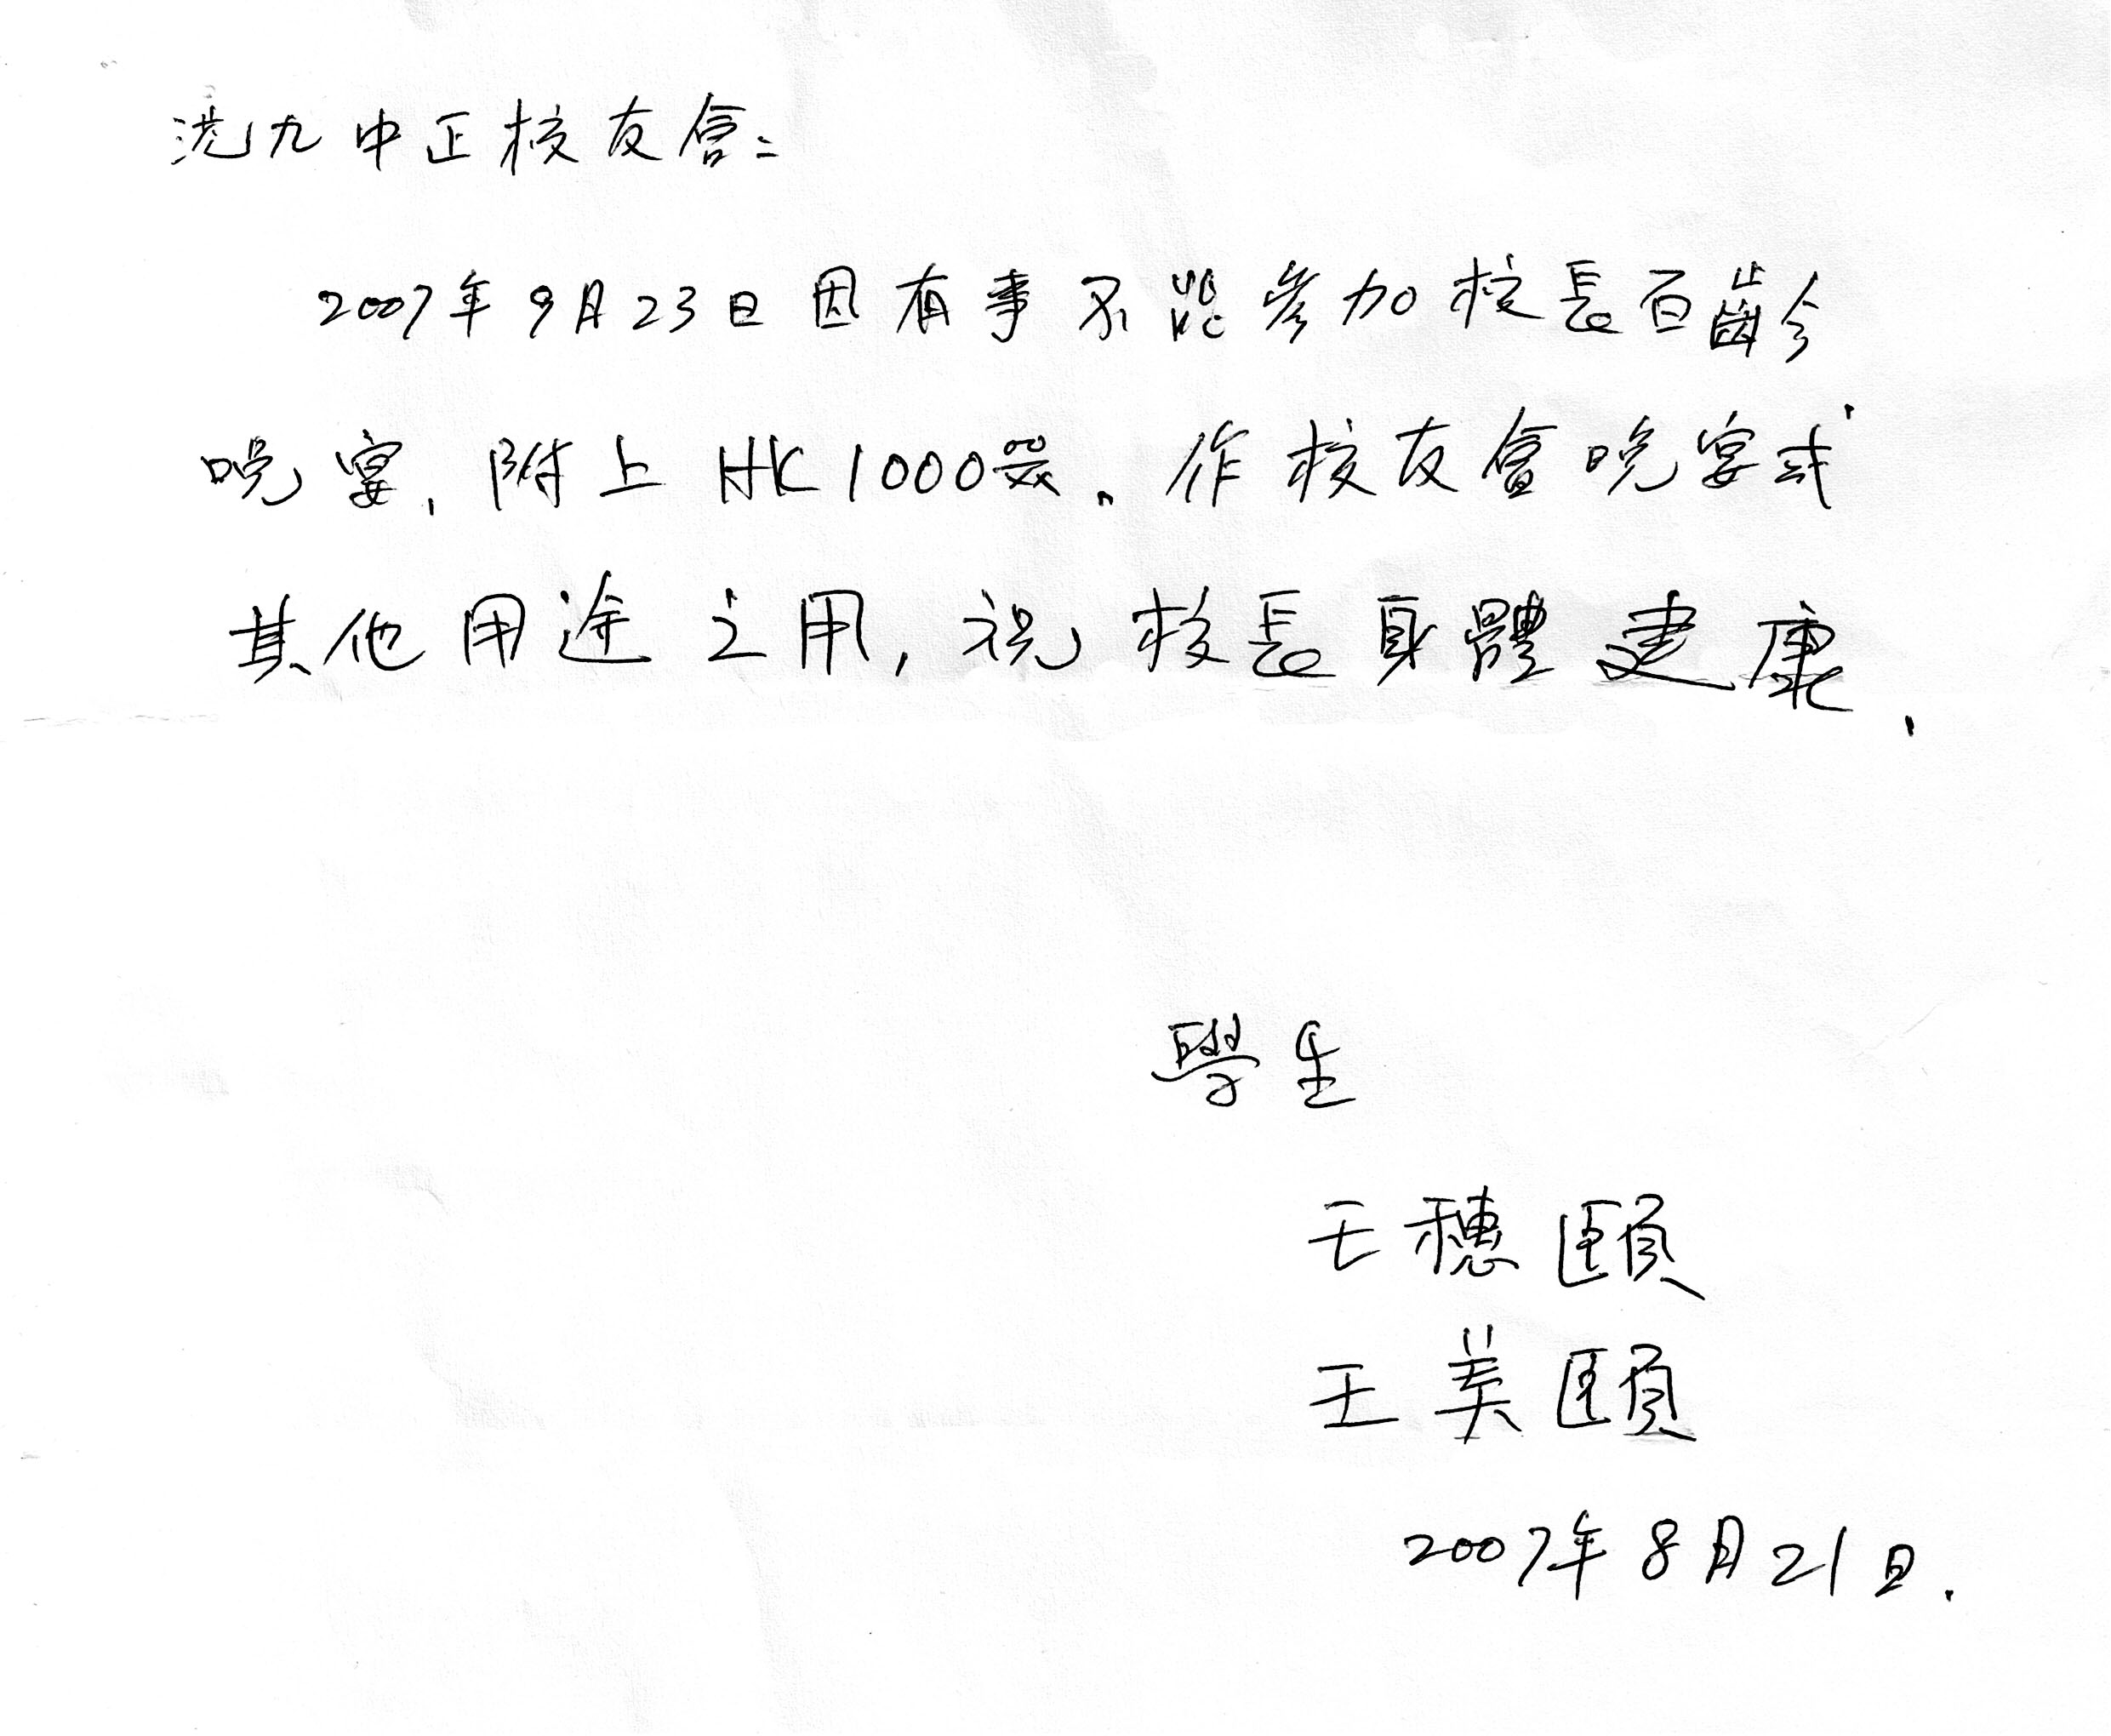 冼九中正校友會：
2007年9月23日因有事不能參加校長百齡
晚宴，附上HK1000円。作校友會晚宴或
其他用途之用，祝校長身體建康，
學生
王穗頤
王美頤
2007年8月21日.